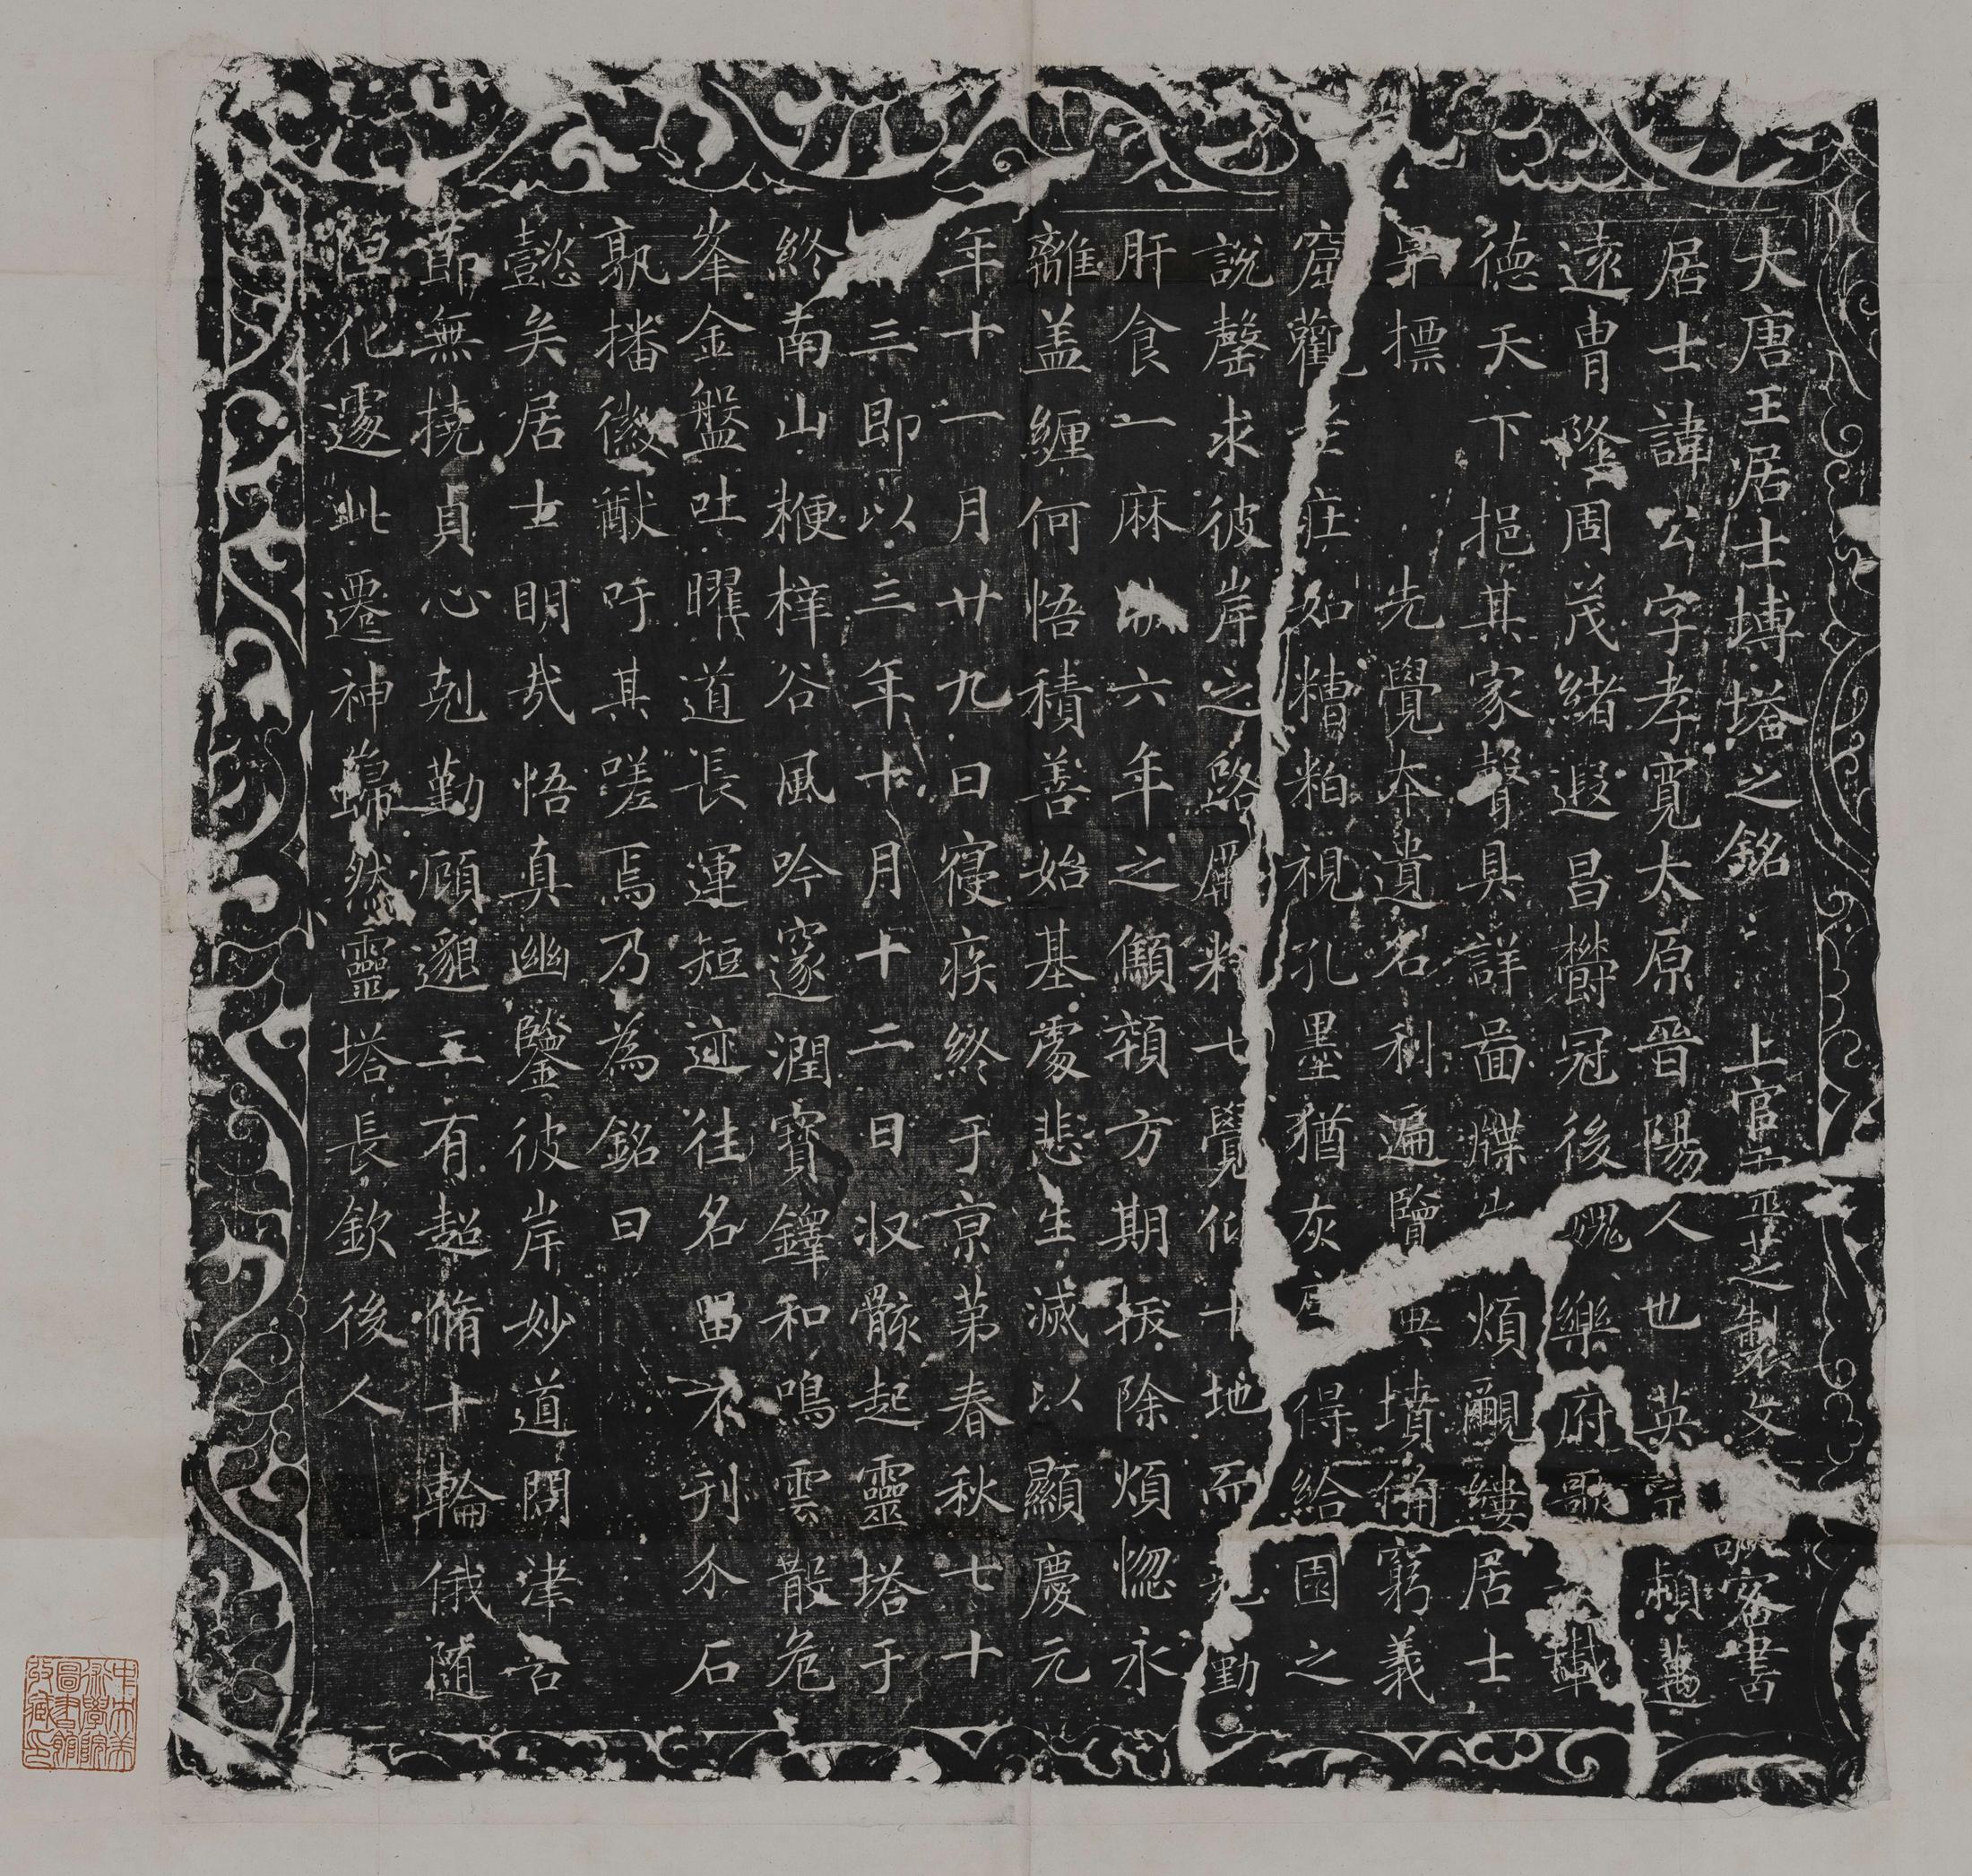 大唐王居士塼塔之銘 上官靈芝製文 敬客書
居士諱公字孝寬太原晉陽人也英宗頼邁
遠胄隆周茂緒遐昌欝冠後魏樂府歌載
德天下挹其家聲具詳啚牒 煩覼縷居士
早摽 先覺本遺名利遍覽 典墳備窮義
窟觀 庄如糟粕視孔墨猶灰 得給園之
說罄求彼岸之路屏 七覺仰十地而 勤
肝食一麻 六年之顦顇方期振除煩惚永
離盖纏何悟積善始基處悲生滅以顯慶元
年十一月廿九日寑疾終于京第春秋七十
三即以三年十月十二日収骸起靈塔于
終南山梗梓谷風吟邃澗寶鐸和鳴雲散危
峯金盤吐曜道長運短迹往名留不刊介石
孰播徽猷吁其嗟焉乃為銘曰
懿矣居士明哉悟真幽鑒彼岸妙道問津苦
節無撓貞心剋勤顧邈三有超脩十輪俄隨
怛化遽此遷神巋然靈塔長欽後人
中央美
術學院
圖書館
收藏印